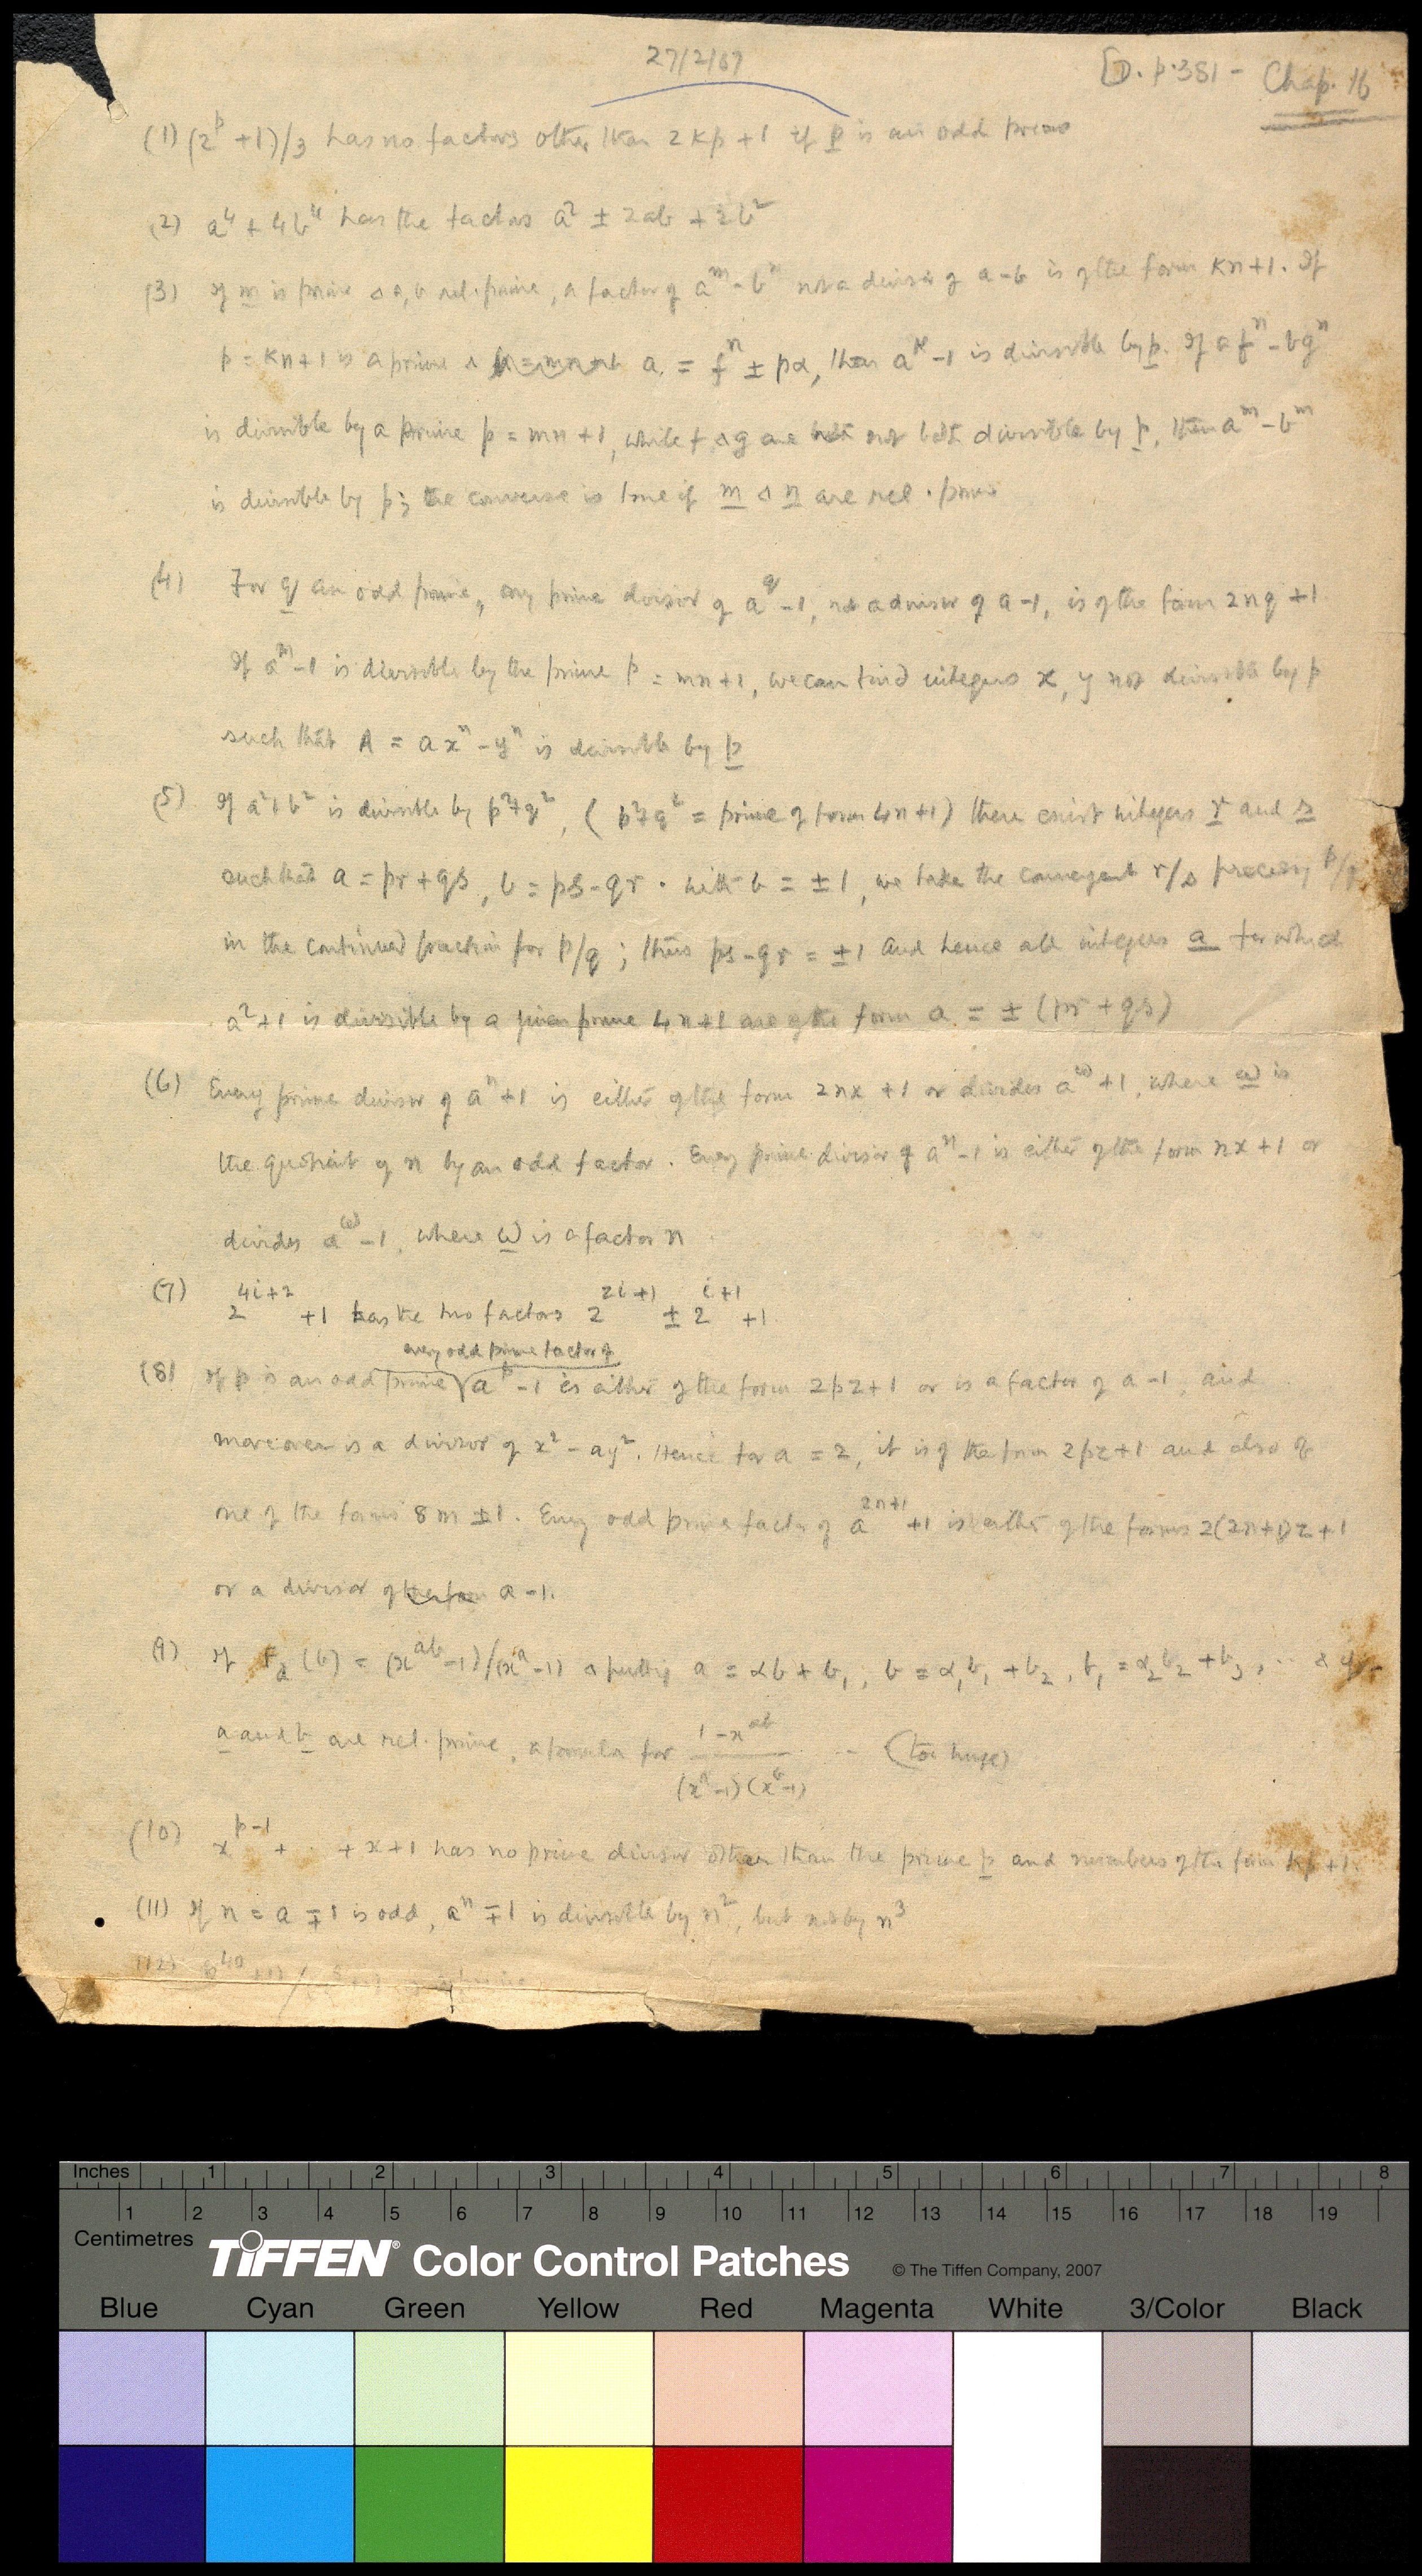 27/2/67
[D. p.381 - Chap. 16
(1) (2^p + 1)/3 has no factors other than 2kp + 1 if p is an odd prime
(2) a^4 + 4b^4 has the factors a^2 ± 2ab + 2b^2
(3) If m is prime & a, b rel. prime, a factor of a^m - b^n not a divisor of a - b is of the form kn+1. If
p = kn+1 is a prime & a = f^n ± pα, then a^k - 1 is divisible by p. If a f^n - b g^n
is divisible by a prime p = mn+1, while f & g are not both divisible by p, then a^m - b^m
is divisible by p; the converse is true if m & n are rel. prime
(4) For q an odd prime, any prime divisor of a^q - 1, not a divisor of a-1, is of the form 2nq + 1
If a^m - 1 is divisible by the prime p = mn+1, we can find integers x, y not divisible by p
such that A = a x^n - y^n is divisible by p
(5) If a^2+b^2 is divisible by p^2+q^2, (p^2+q^2 = prime of form 4n+1) there exist integers r and s
such that a = pr + qs, b = ps - qr. With b = ±1, we take the convergent r/s preceding p/q
in the continued fraction for p/q; thus ps - qr = ±1 and hence all integers a for which
a^2+1 is divisible by a given prime 4n+1 are of the form a = ± (pr + qs)
(6) Every prime divisor of a^n + 1 is either of the form 2nx + 1 or divides a^ω + 1, where ω is
the quotient of n by an odd factor. Every prime divisor of a^n - 1 is either of the form nx + 1 or
divides a^ω - 1, where ω is a factor n
(7) 2^{4i+2} + 1 has the two factors 2^{2i+1} ± 2^{i+1} + 1
every odd prime factor of
(8) If p is an odd prime a^p - 1 is either of the form 2pz+1 or is a factor of a-1, and
moreover is a divisor of x^2 - ay^2. Hence for a = 2, it is of the form 2pz+1 and also of
one of the forms 8m ± 1. Every odd prime factor of a^{2n+1} + 1 is either of the forms 2(2n+1)z + 1
or a divisor of a - 1.
(9) If F_a(b) = (x^{ab} - 1)/(x^a - 1) & putting a = αb + b_1, b = α_1b_1 + b_2, b_1 = α_2b_2 + b_3, ... & if
a and b are rel. prime, a formula for (1 - x^{ab})/((x^a - 1)(x^b - 1)) -- (too huge)
(10) x^{p-1} + .. + x + 1 has no prime divisor other than the prime p and numbers of the form kp + 1.
(11) If n = a ∓ 1 is odd, a^n ∓ 1 is divisible by n^2, but not by n^3
(12)
Inches 1 2 3 4 5 6 7 8
1 2 3 4 5 6 7 8 9 10 11 12 13 14 15 16 17 18 19
Centimetres
TIFFEN® Color Control Patches © The Tiffen Company, 2007
Blue Cyan Green Yellow Red Magenta White 3/Color Black